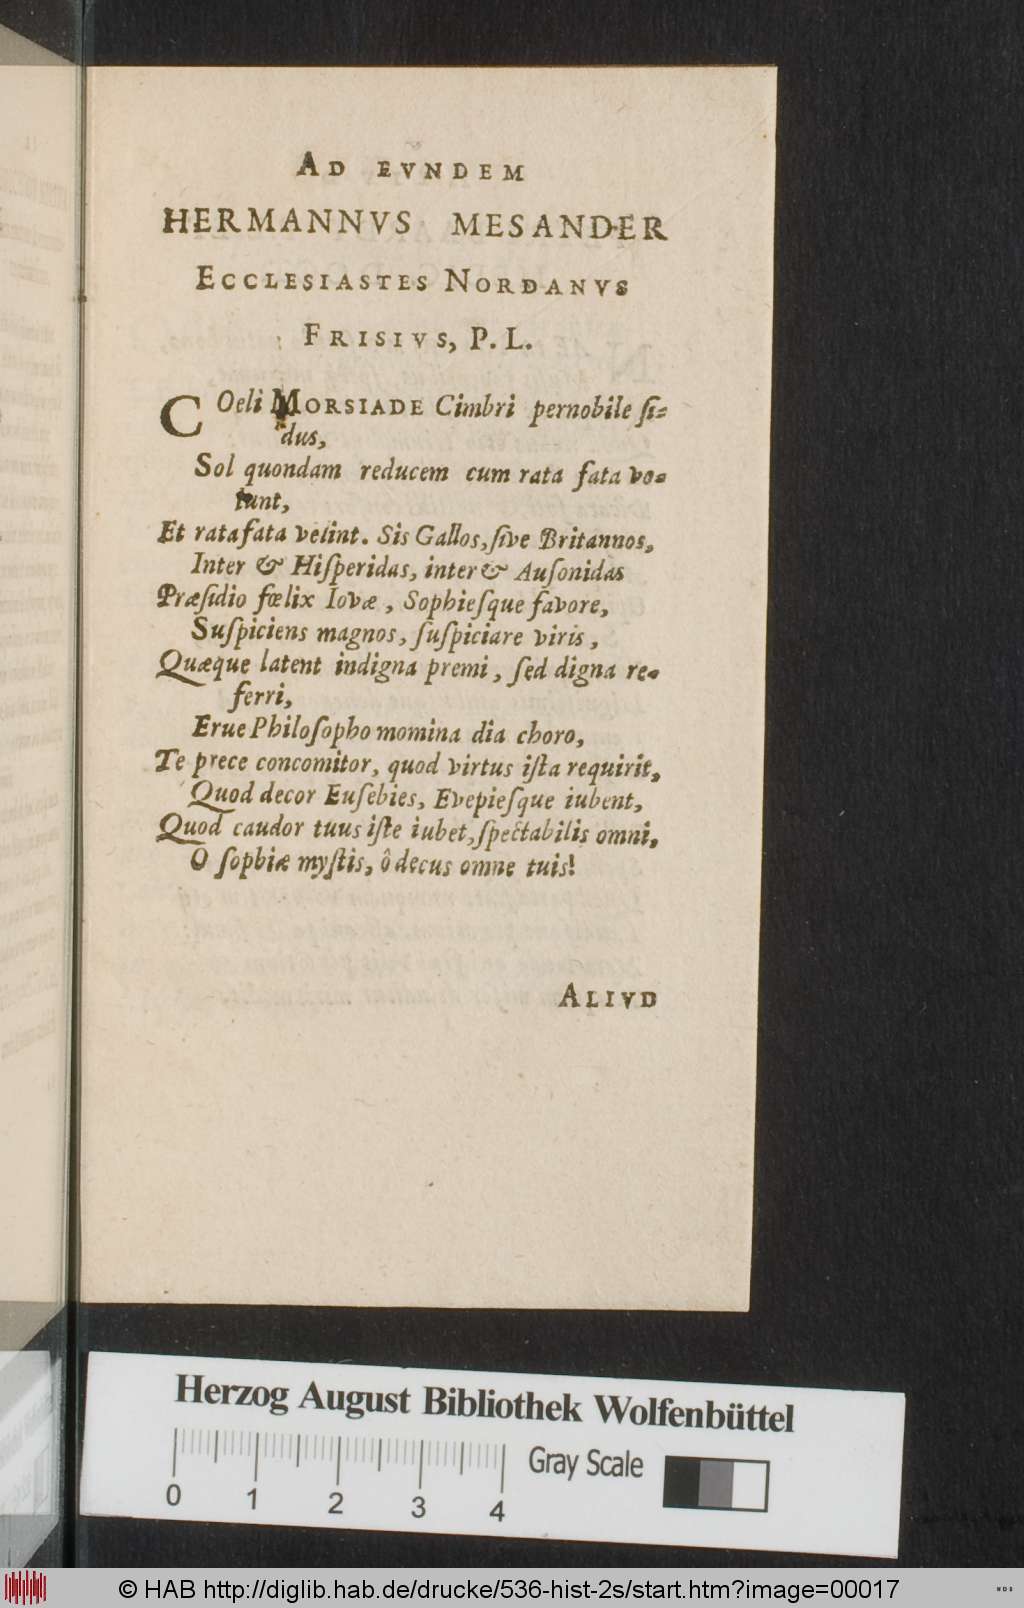 AD EVNDEM
HERMANNVS MESANDER
ECCLESIASTES NORDANVS
FRISIVS, P. L.
COeli MORSIADE Cimbri pernobile ſi-
dus,
Sol quondam reducem cum rata fata vo-
lunt,
Et rata fata velint. Sis Gallos, ſive Britannos,
Inter & Hiſperidas, inter & Auſonidas
Præſidio fœlix Iovæ, Sophieſque favore,
Suſpiciens magnos, ſuſpiciare viris,
Quæque latent indigna premi, ſed digna re-
ferri,
Erue Philoſopho momina dia choro,
Te prece concomitor, quod virtus iſta requirit,
Quod decor Euſebies, Evepieſque iubent,
Quod caudor tuus iſte iubet, ſpectabilis omni,
O ſophiæ myſtis, ô decus omne tuis!
ALIVD
Herzog August Bibliothek Wolfenbüttel
Gray Scale
0 1 2 3 4
© HAB http://diglib.hab.de/drucke/536-hist-2s/start.htm?image=00017